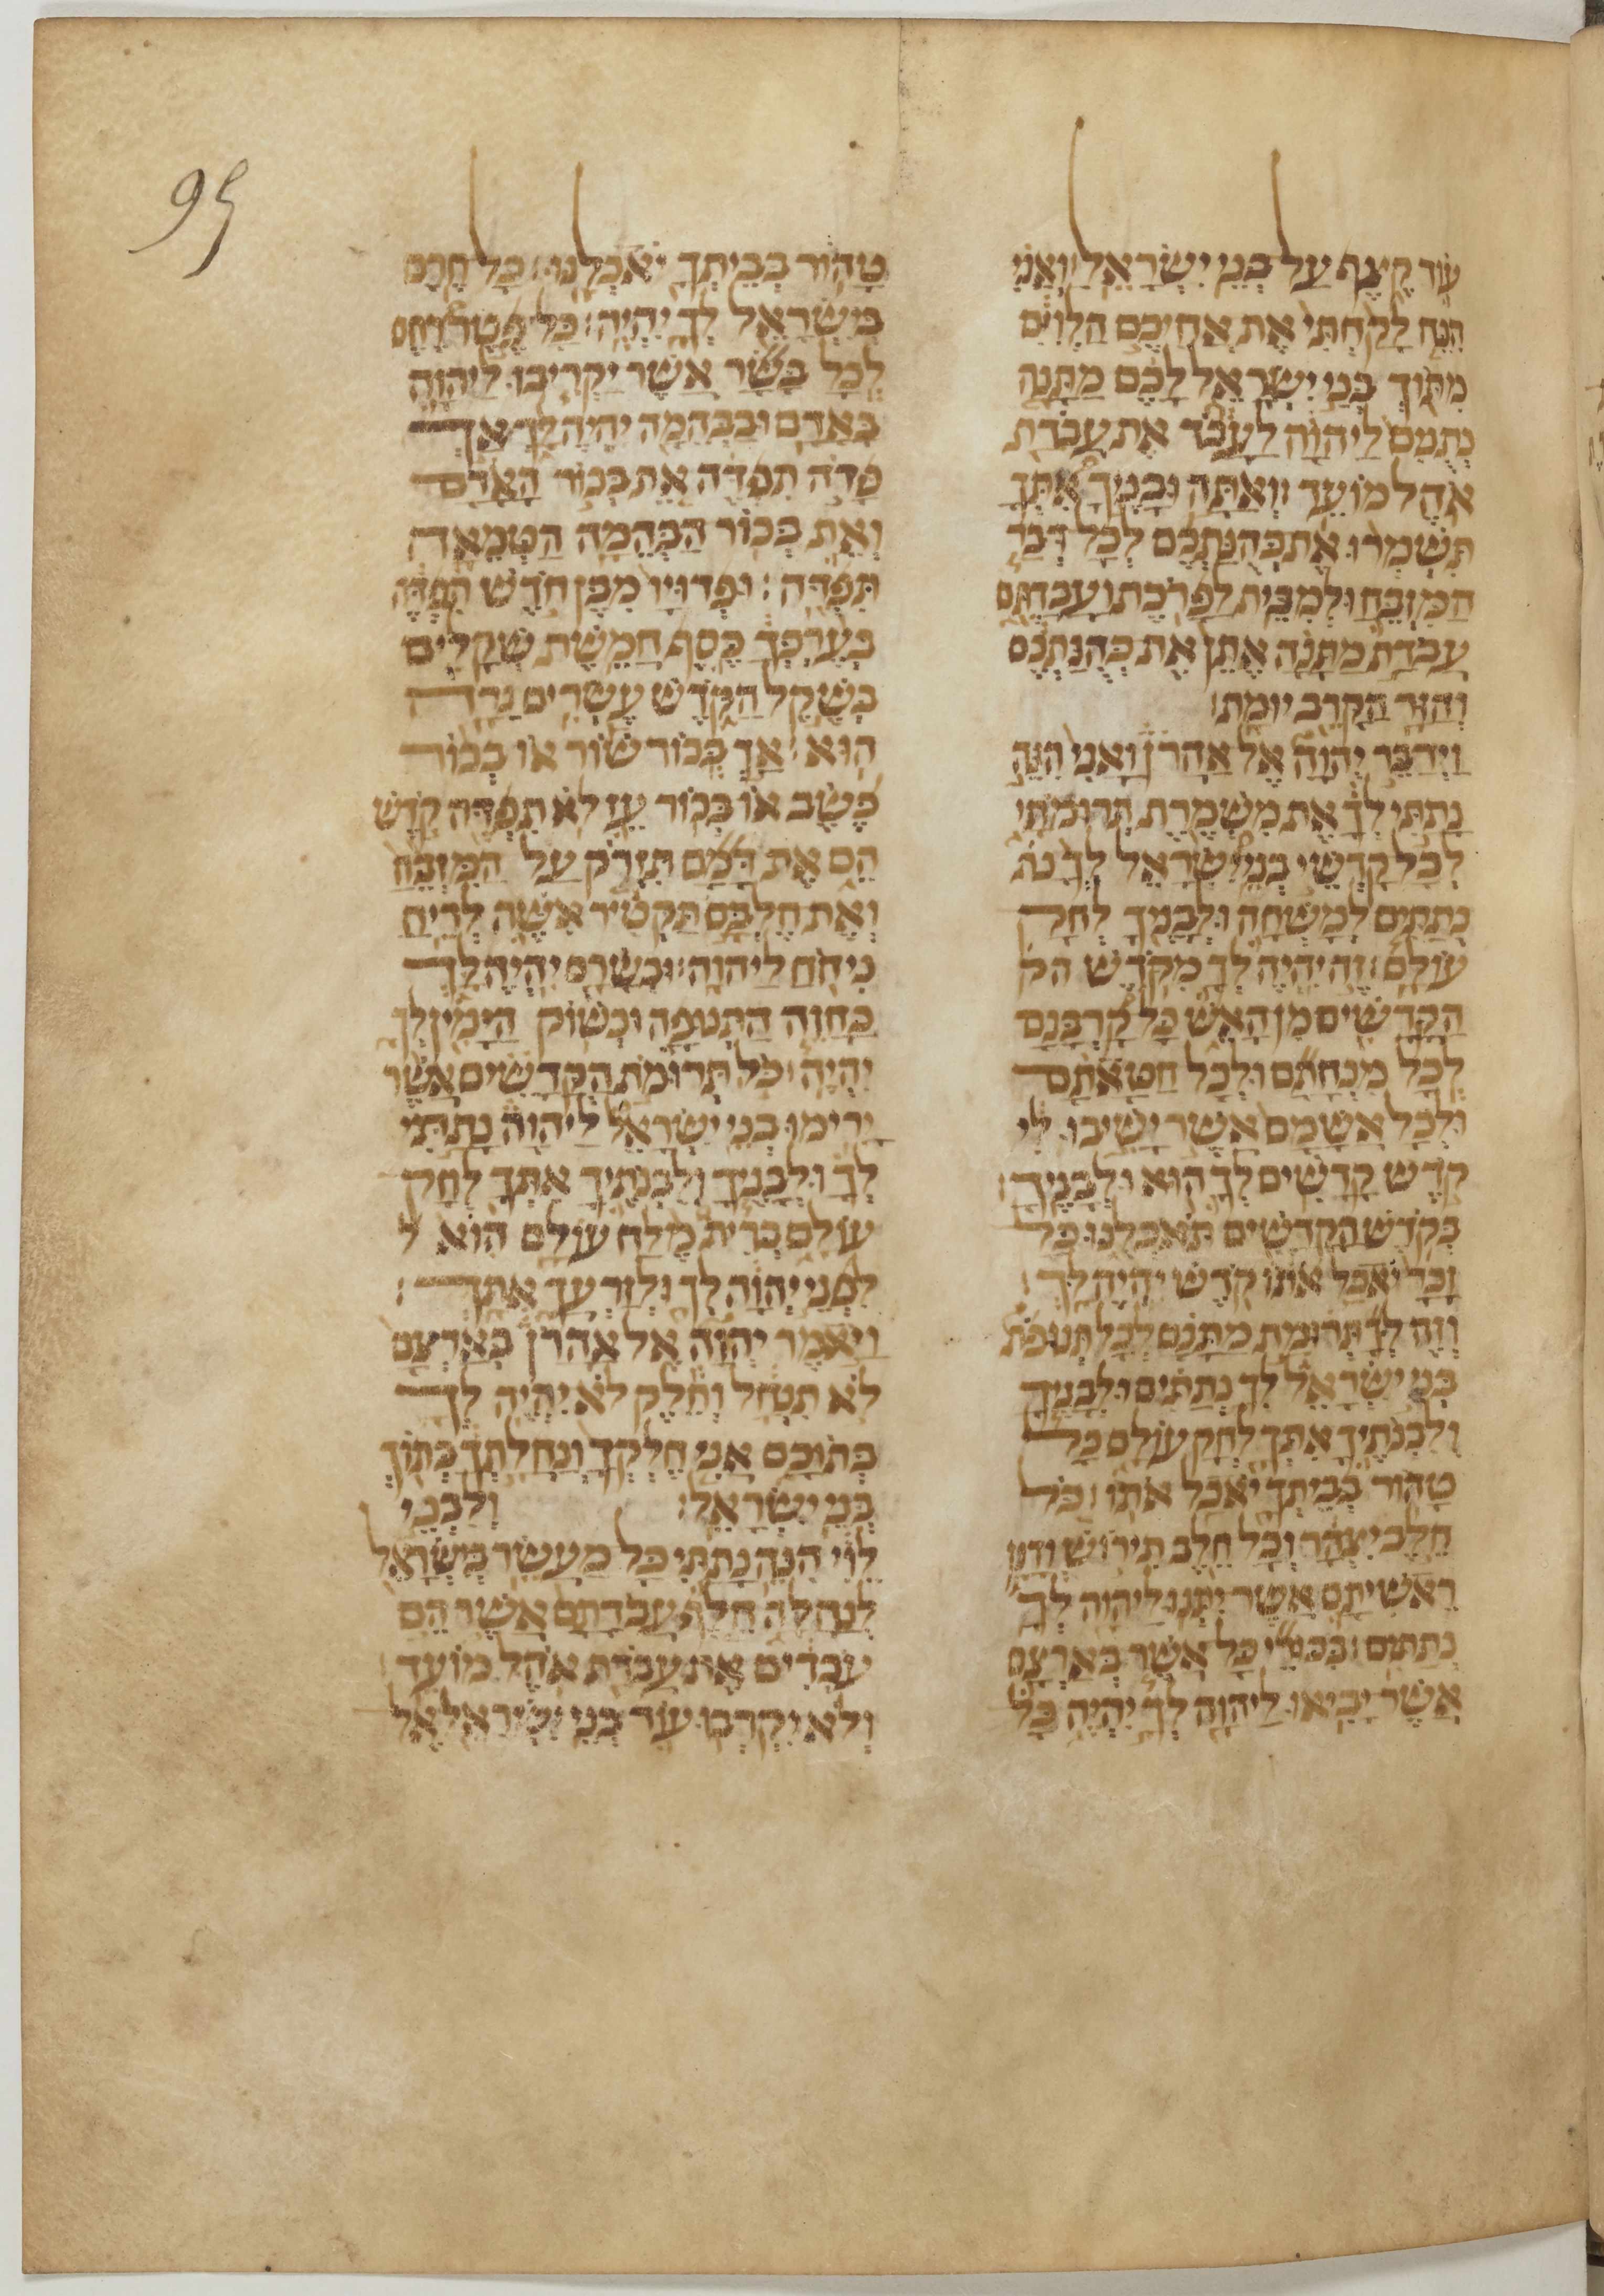 עוד קצף על בני ישראל׃ ואני
הנה לקחתי את אחיכם הלוים
מתוך בני ישראל לכם מתנה
נתנים ליהוה לעבד את עבדת
אהל מועד׃ ואתה ובניך אתך
תשמרו את כהנתכם לכל דבר
המזבח ולמבית לפרכת ועבדתם
עבדת מתנה אתן את כהנתכם
והזר הקרב יומת׃
וידבר יהוה אל אהרן ואני הנה
נתתי לך את משמרת תרומתי
לכל קדשי בני ישראל לך נת
נתתים למשחה ולבניך לחק
עולם׃ זה יהיה לך מקדש הק
הקדשים מן האש כל קרבנם
לכל מנחתם ולכל חטאתם
ולכל אשמם אשר ישיבו לי
קדש קדשים לך הוא ולבניך׃
בקדש הקדשים תאכלנו כל
זכר יאכל אתו קדש יהיה לך׃
וזה לך תרומת מתנם לכל תנופת
בני ישראל לך נתתים ולבניך
ולבנתיך אתך לחק עולם כל
טהור בביתך יאכל אתו׃ כל
חלב יצהר וכל חלב תירוש ודגן
ראשיתם אשר יתנו ליהוה לך
נתתים׃ בכורי כל אשר בארצם
אשר יביאו ליהוה לך יהיה כל
95
טהור בביתך יאכלנו׃ כל חרם
בישראל לך יהיה׃ כל פטר רחם
לכל בשר אשר יקריבו ליהוה
באדם ובבהמה יהיה לך אך
פדה תפדה את בכור האדם
ואת בכור הבהמה הטמאה
תפדה׃ ופדויו מבן חדש תפדה
בערכך כסף חמשת שקלים
בשקל הקדש עשרים גרה
הוא׃ אך בכור שור או בכור
כשב או בכור עז לא תפדה קדש
הם את דמם תזרק על המזבח
ואת חלבם תקטיר אשה לריח
ניחח ליהוה׃ ובשרם יהיה לך
כחזה התנופה וכשוק הימין לך
יהיה׃ כל תרומת הקדשים אשר
ירימו בני ישראל ליהוה נתתי
לך ולבניך ולבנתיך אתך לחק
עולם ברית מלח עולם הוא ל
לפני יהוה לך ולזרעך אתך׃
ויאמר יהוה אל אהרן בארצם
לא תנחל וחלק לא יהיה לך
בתוכם אני חלקך ונחלתך בתוך
בני ישראל׃ ולבני
לוי הנה נתתי כל מעשר בישראל
לנחלה חלף עבדתם אשר הם
עבדים את עבדת אהל מועד׃
ולא יקרבו עוד בני ישראל אל